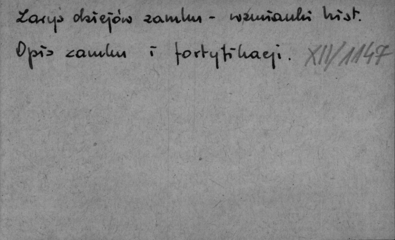 Zarys dziejów zamku - wzmianki hist.
Opis zamku i fortyfikacji. XIV/1147